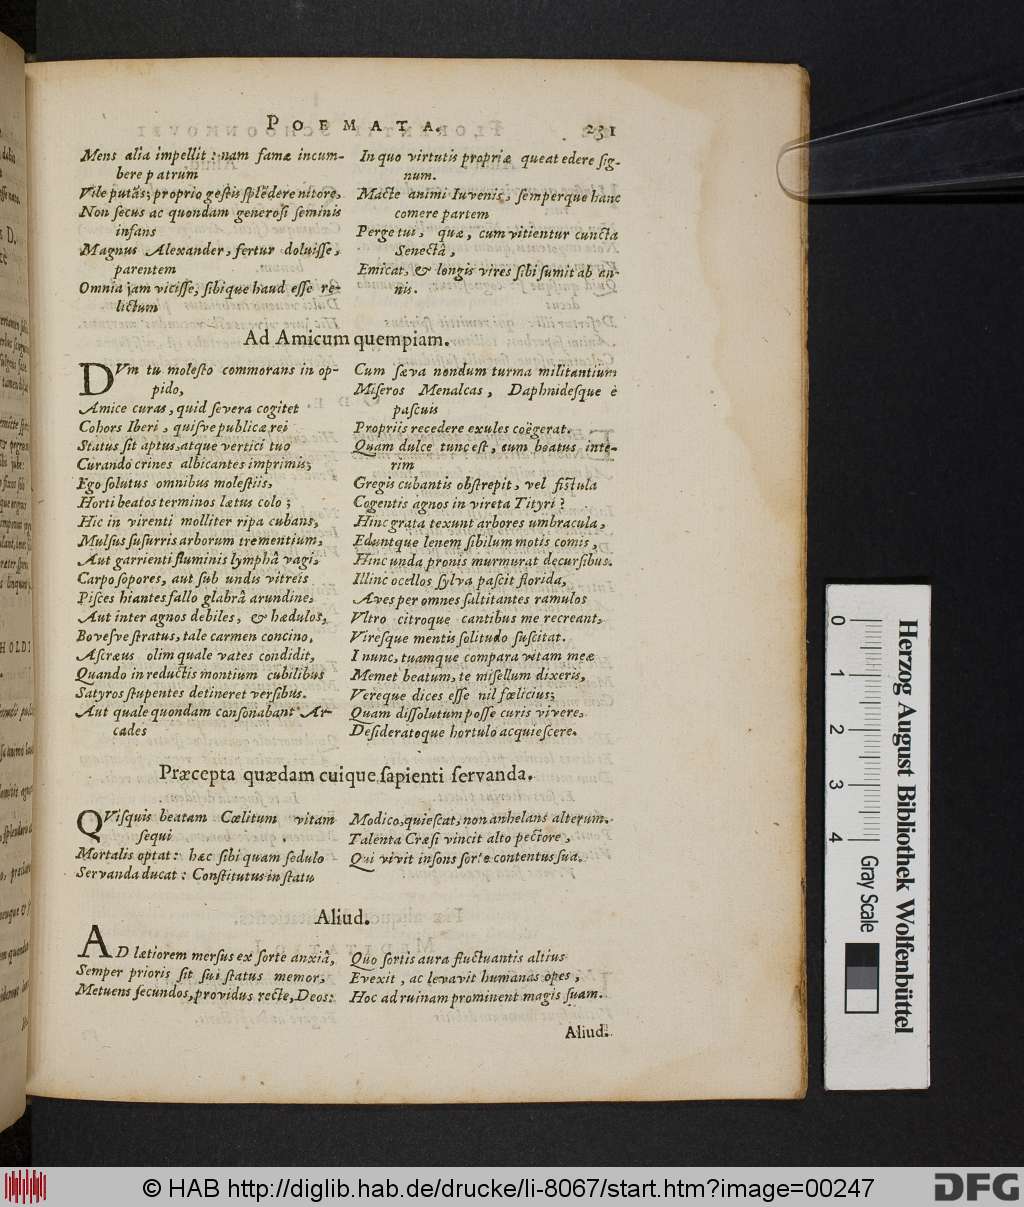 POEMATA. 231
Mens alia impellit: nam famæ incum-
bere patrum
Vile putās; proprio gestis splēdere nitore,
Non secus ac quondam generosi seminis
infans
Magnus Alexander, fertur doluisse,
parentem
Omnia jam vicisse, sibique haud esse re-
lictum
In quo virtutis propriæ queat edere sig-
num.
Macte animi Iuvenis, semperque hanc
comere partem
Perge tui, quæ, cum vitientur cuncta
Senectâ,
Emicat, & longis vires sibi sumit ab an-
nis.
Ad Amicum quempiam.
DVm tu molesto commorans in op-
pido,
Amice curas, quid severa cogitet
Cohors Iberi, quisve publicæ rei
Status sit aptus, atque vertici tuo
Curando crines albicantes imprimis;
Ego solutus omnibus molestiis,
Horti beatos terminos lætus colo;
Hic in virenti molliter ripa cubans,
Mulsus susurris arborum trementium,
Aut garrienti fluminis lymphâ vagi,
Carpo sopores, aut sub undis vitreis
Pisces hiantes fallo glabrâ arundine,
Aut inter agnos debiles, & hædulos,
Bovesve stratus, tale carmen concino,
Ascræus olim quale vates condidit,
Quando in reductis montium cubilibus
Satyros stupentes detineret versibus.
Aut quale quondam consonabant Ar-
cades
Cum sæva nondum turma militantium
Miseros Menalcas, Daphnidesque è
pascuis
Propriis recedere exules coëgerat.
Quam dulce tunc est, cum beatus inte-
rim
Gregis cubantis obstrepit, vel fistula
Cogentis agnos in vireta Tityri?
Hinc grata texunt arbores umbracula,
Eduntque lenem sibilum motis comis,
Hinc unda pronis murmurat decursibus.
Illinc ocellos sylva pascit florida,
Aves per omnes saltitantes ramulos
Vltro citroque cantibus me recreant,
Viresque mentis solitudo suscitat.
I nunc, tuamque compara vitam meæ
Memet beatum, te misellum dixeris,
Vereque dices esse nil fœlicius;
Quam dissolutum posse curis vivere,
Desideratoque hortulo acquiescere.
Præcepta quædam cuique sapienti servanda.
QVisquis beatam Cœlitum vitam
sequi
Mortalis optat: hæc sibi quam sedulo
Servanda ducat: Constitutus in statu
Modico, quiescat, non anhelans alterum.
Talenta Cræsi vincit alto pectore,
Qui vivit insons sorte contentus sua.
Aliud.
AD lætiorem mersus ex sorte anxiâ,
Semper prioris sit sui status memor,
Metuens secundos, providus recte, Deos:
Quo sortis aura fluctuantis altius
Evexit, ac levavit humanas opes,
Hoc ad ruinam prominent magis suam.
Aliud.
0 1 2 3 4
Herzog August Bibliothek Wolfenbüttel
Gray Scale
© HAB http://diglib.hab.de/drucke/li-8067/start.htm?image=00247
DFG